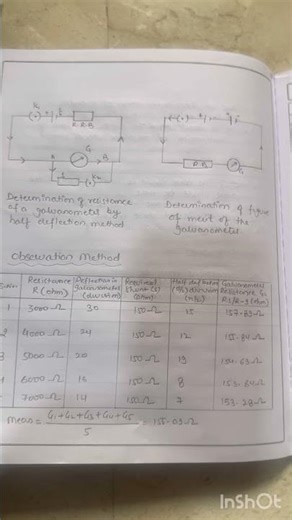 K1
E
R.R.B
G
S
K2
R.B
G
Determination of resistance
of a galvanometer by
half deflection method
Determination of figure
of merit of the
galvanometer
Observation Method
S.No Resistance R (ohm) Deflection in galvanometer (division) Required shunt (s) (ohm) Half deflection (n/2)
1 3000 Ω 30 150 Ω 15 157.89 Ω
2 4000 Ω 24 150 Ω 12 155.84 Ω
3 5000 Ω 20 150 Ω 19 154.63 Ω
4 6000 Ω 16 150 Ω 8 153.84 Ω
7000 Ω 14 150 Ω 7 153.28 Ω
mean = G1+G2+G3+G4+G5 / 5 = 155.09 Ω
InShOt